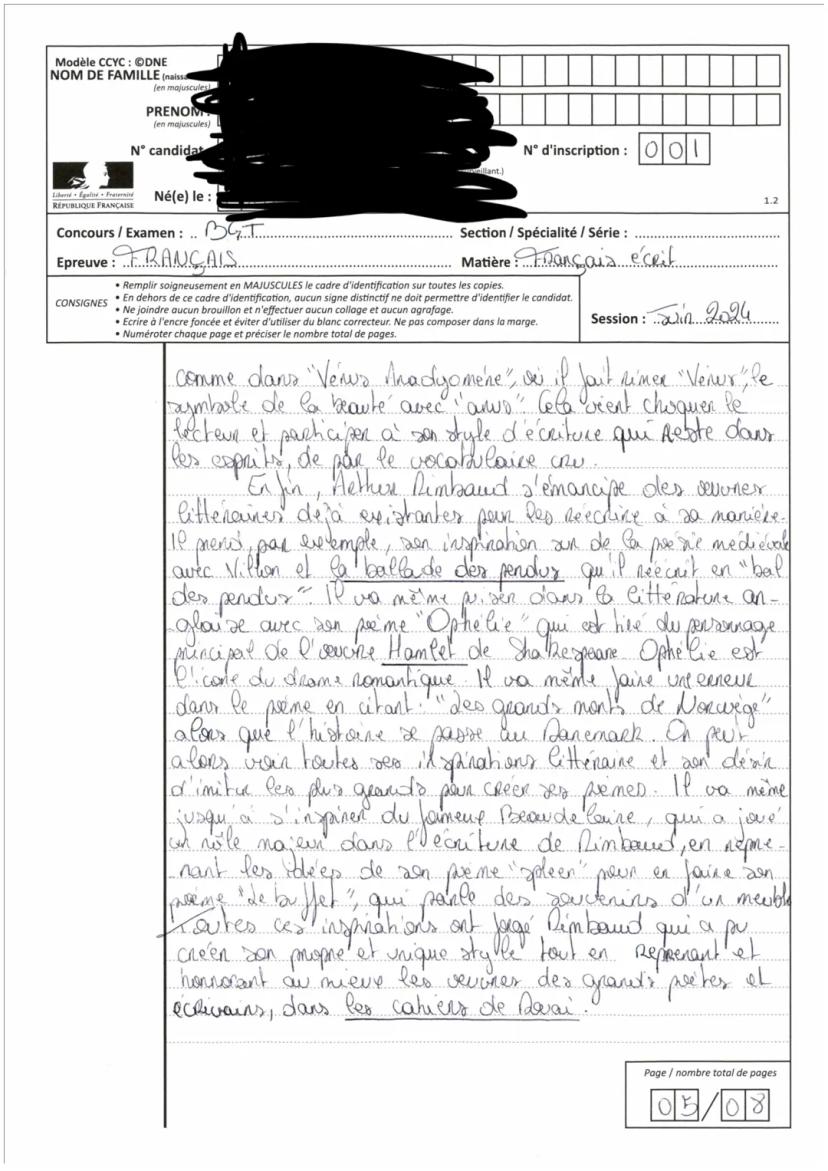 Modèle CCYC : ©DNE
NOM DE FAMILLE (naiss
(en majuscules)
PRENOM
(en majuscules)
N° candidat
N° d'inscription : 001
eillant.)
Né(e) le :
Liberté • Égalité • Fraternité
RÉPUBLIQUE FRANÇAISE
1.2
Concours / Examen : BGT
Section / Spécialité / Série :
Epreuve : FRANÇAIS
Matière : Français écrit
CONSIGNES
• Remplir soigneusement en MAJUSCULES le cadre d'identification sur toutes les copies.
• En dehors de ce cadre d'identification, aucun signe distinctif ne doit permettre d'identifier le candidat.
• Ne joindre aucun brouillon et n'effectuer aucun collage et aucun agrafage.
• Ecrire à l'encre foncée et éviter d'utiliser du blanc correcteur. Ne pas composer dans la marge.
• Numéroter chaque page et préciser le nombre total de pages.
Session : Juin 2024
comme dans "Vénus Anadyomène", où il fait rimer "Vénus", le
symbole de la beauté avec "anus". Cela vient choquer le
lecteur et participer à son style d'écriture qui reste dans
les esprits, de par le vocabulaire cru.
Enfin, Arthur Rimbaud s'émancipe des œuvres
littéraires déjà existantes pour les réécrire à sa manière.
Il prend, par exemple, son inspiration sur de la poésie médiévale
avec Villon et la ballade des pendus qu'il réécrit en "bal
des pendus". Il va même puiser dans la littérature an-
-glaise avec son poème "Ophélie" qui est tiré du personnage
principal de l'œuvre Hamlet de Shakespeare. Ophélie est
l'icone du drame romantique. Il va même faire une erreur
dans le poème en citant : "des grands monts de Norwège"
alors que l'histoire se passe au Danemark. On peut
alors voir toutes ses inspirations littéraire et son désir
d'imiter les plus grands pour créer ses poèmes. Il va même
jusqu'à s'inspirer du fameux Beaudelaire, qui a joué
un rôle majeur dans l'écriture de Rimbaud, en repre-
-nant les idées de son poème "spleen" pour en faire son
poème "le buffet", qui parle des souvenirs d'un meuble.
Toutes ces inspirations ont forgé Rimbaud qui a pu
créer son propre et unique style tout en reprenant et
honnorant au mieux les œuvres des grands poètes et
écrivains, dans les cahiers de Douai.
Page / nombre total de pages
05/08